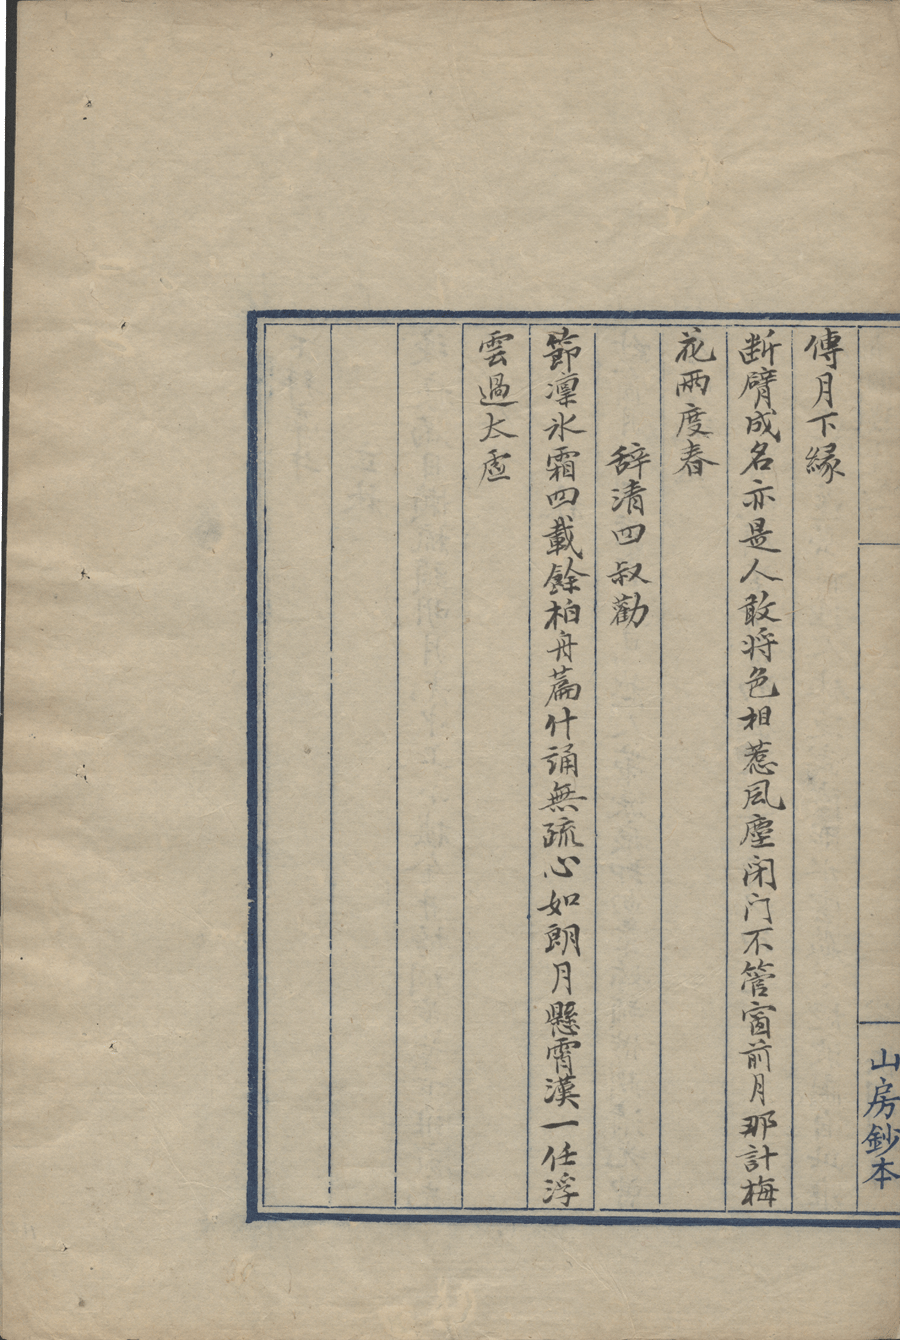 山房鈔本
傳月下緣
断臂成名亦是人敢将色相惹風塵闭门不管窗前月那計梅
花兩度春
辞清四叔勸
節凜氷霜四載餘柏舟篇什誦無疏心如朗月懸霄漢一任浮
雲過太虗